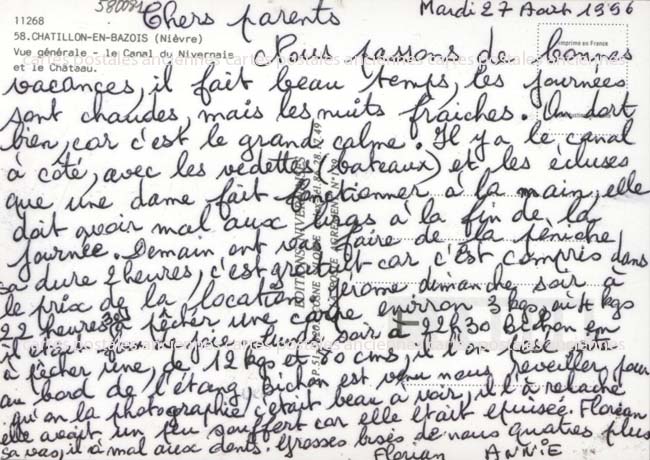 580081
Chers parents
Mardi 27 Août 1996
11268
58.CHATILLON-EN-BAZOIS (Nièvre)
Vue générale - le Canal du Nivernais
et le Château.
Imprimé en France
Nous passons de bonnes
vacances, il fait beau temps, les journées
sont chaudes, mais les nuits fraîches. On dort
bien, car c'est le grand calme. Il y a le canal
à côté, avec les vedettes (bateaux) et les écluses
que une dame fait fonctionner à la main, elle
doit avoir mal aux bras à la fin de la
journée. Demain on va faire de la péniche,
sa dure 2 heures, c'est gratuit car c'est compris dans
le prix de la location. Jérome dimanche soir à
22 heures à pêcher une carpe environ 3 kgs
il était soir à 22h30 Bichon en
à pêcher une, de 12 kgs et 80 cms, il l'a
au bord de l'étang Bichon est venu nous réveiller, pour
qu'on la photographie, c'était beau à voir, il l'à relaché
elle avait un peu souffert car elle était épuisée. Florian
sa vas, il à mal aux dents. Grosses bises de nous quatres plus
Florian ANNIE
cartes postales anciennes cartes postales anciennes cartes postales anciennes